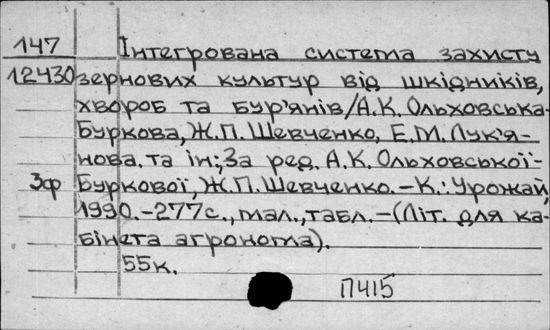 147 Інтегрована система захисту
12430 зернових культур від шкідників,
хвороб та бур'янів/А.К. Ольховська-
Буркова, Ж.П. Шевченко, Е.М. Лук'я-
нова та ін; За ред. А.К. Ольховської-
Зф Буркової, Ж.П. Шевченко. –К.: Урожай,
1990. –277с., мал., табл. –(Літ. для ка-
бінета агронома).
55к.
П415